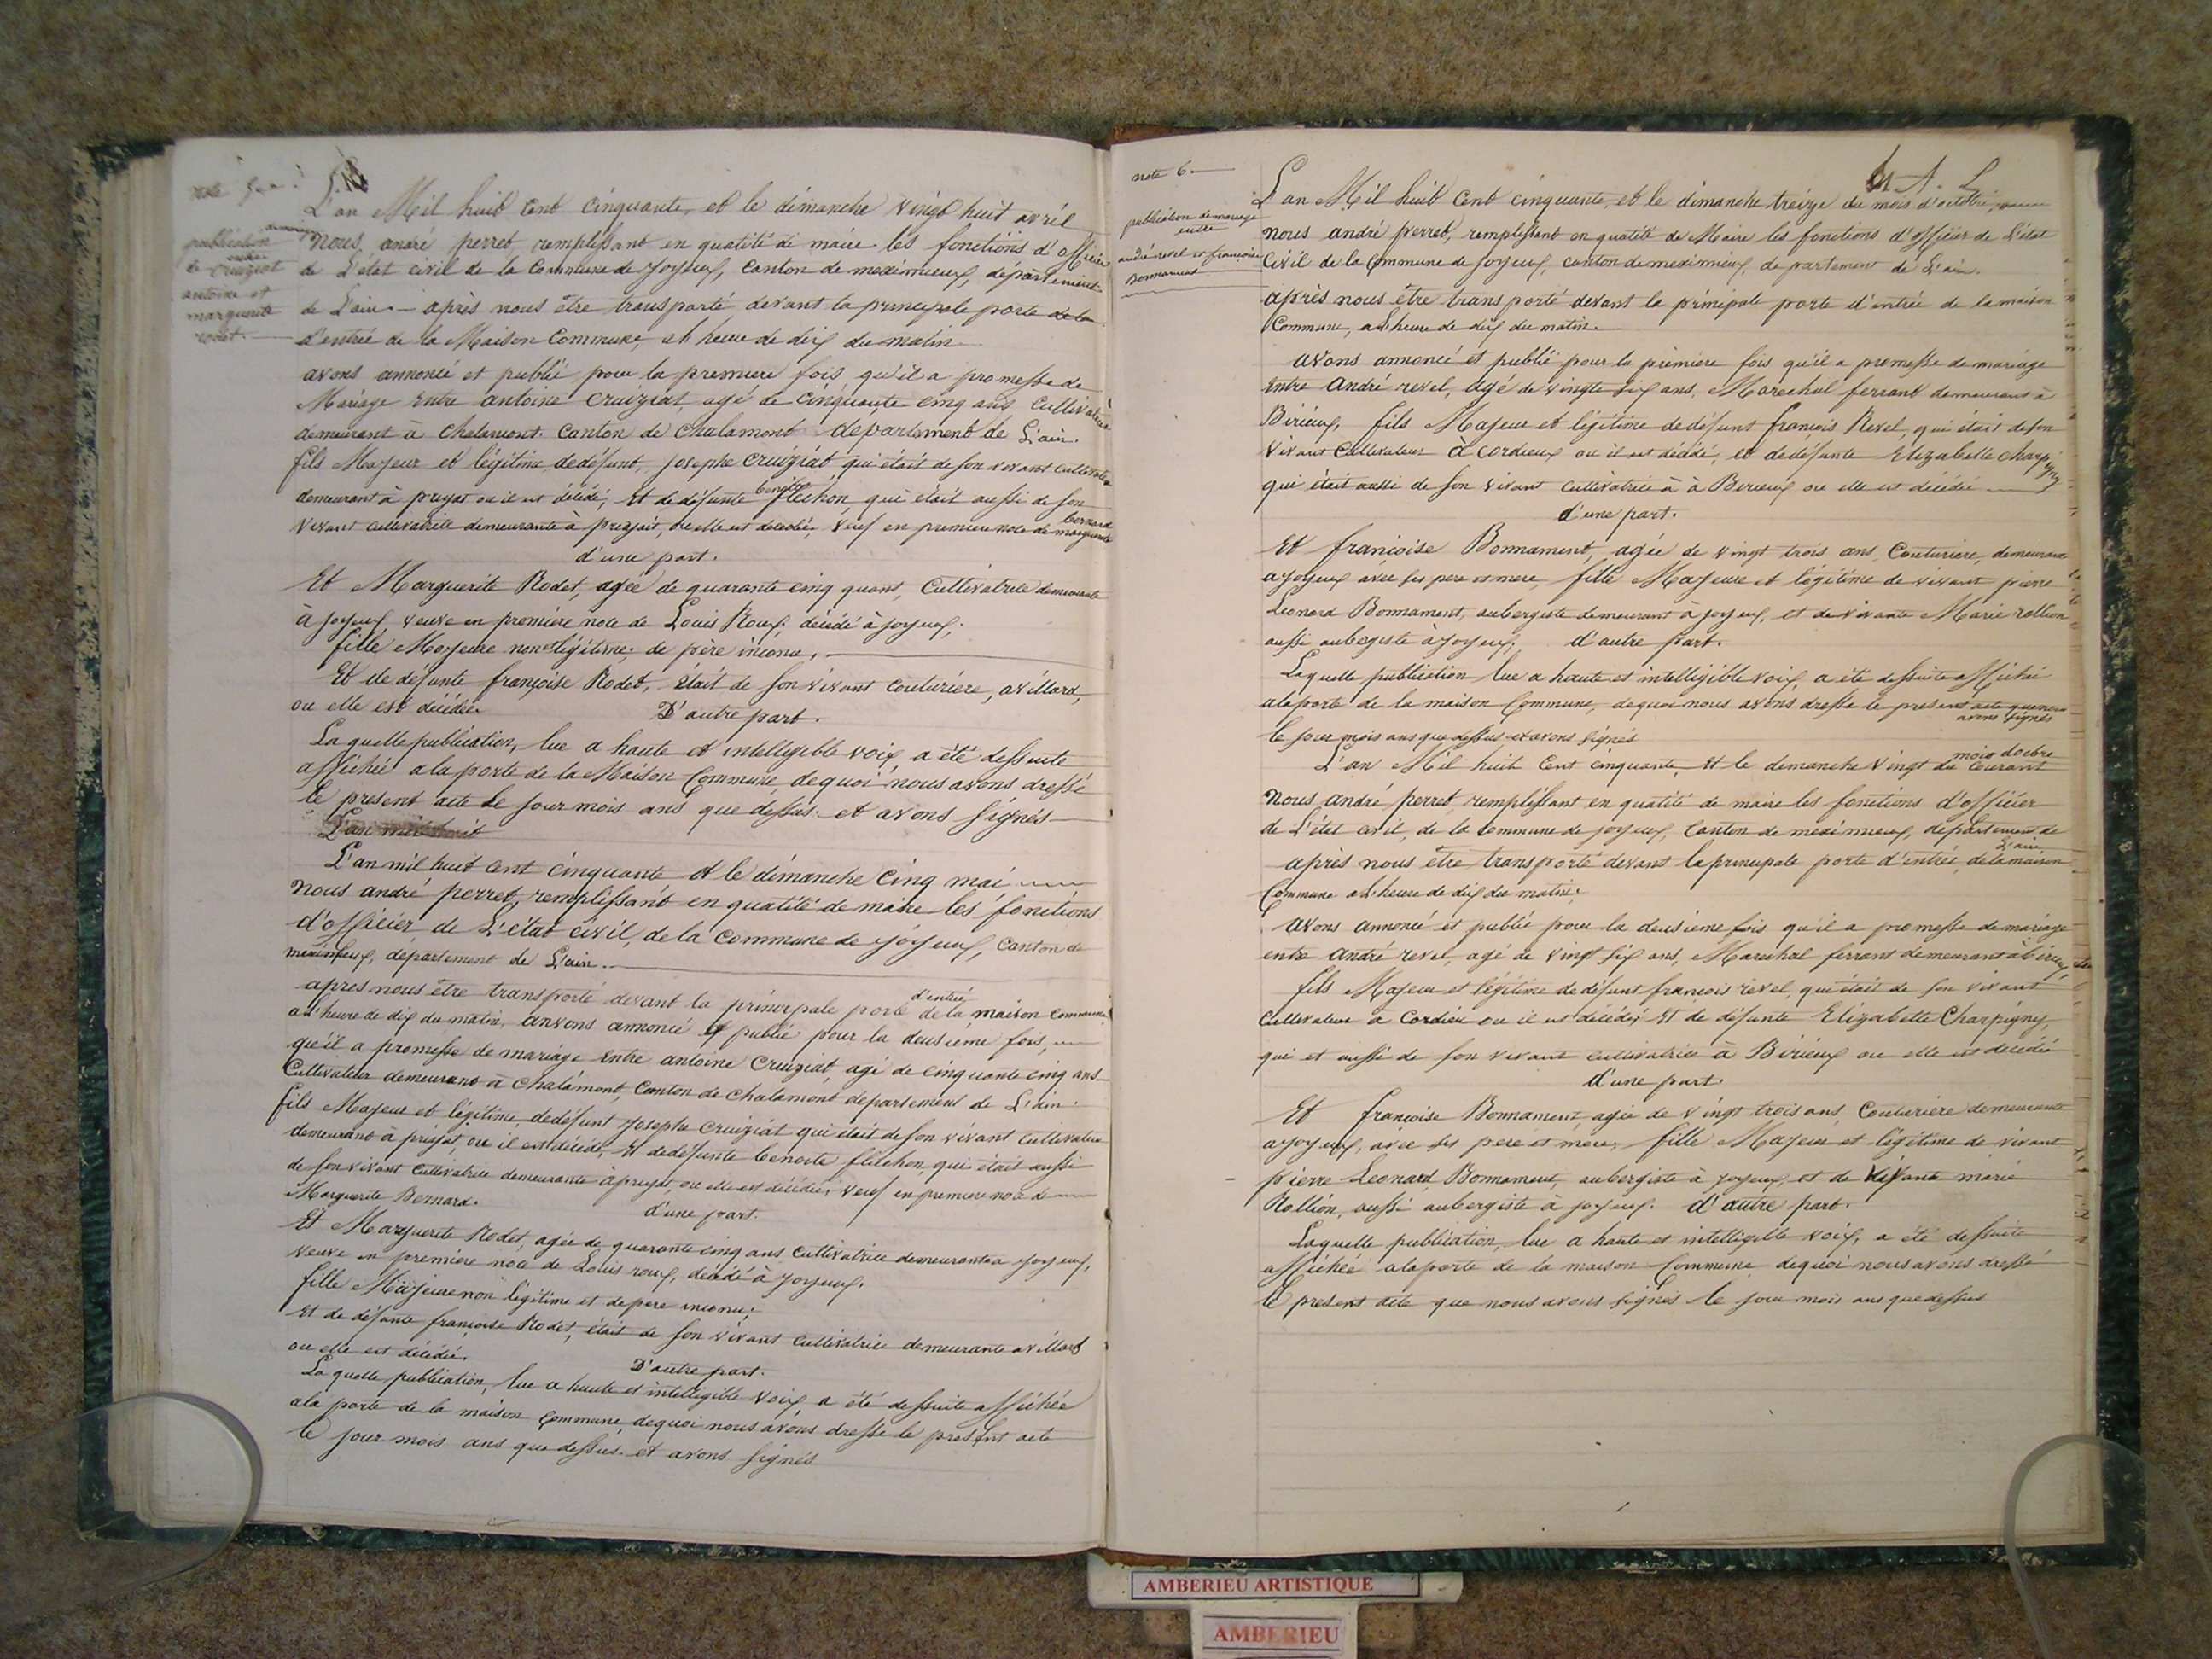 publication
de cruiziat
antoine et
marguerite
rodet.
L'an Mil huit cent cinquante, et le dimanche vingt huit avril
nous, andré perret, remplissant en qualité de maire les fonctions d'officier
de L'état civil de la Commune de Joyeux, canton de meximieux, département
de L'ain — après nous être transporté devant la principale porte de la
d'entrée de la Maison Commune, a l'heure de dix du matin
avons annoncé et publié pour la premiere fois qu'il a promesse de
Mariage Entre antoine Cruiziat, agé de cinquante cinq ans Cultivateur
demeurant à Chalamont. Canton de Chalamont département de L'ain.
fils Majeur et légitime dedéfunt, Josephe Cruiziat qui était de son vivant cultivateur
demeurant à où il est décédé, Et dedéfunte benoite fléchon, qui était aussi de son
vivant cultivatrice demeurante à ou elle est décédée, Veuf en premiere noce de marguerite bernard
d'une part.
Et Marguerite Rodet, agée de quarante cinq quant, Cultivatrice demeurante
à Joyeux veuve en première noce de Louis Roux, décédé à Joyeux.
fille Majeure non légitime, de père inconu,
Et de défunte françoise Rodet, était de son vivant couturière, a villard,
ou elle est décédée D'autre part.
La quelle publication, lue a haute et intelligible voix, a été dessuite
affichée a la porte de la Maison Commune, dequoi nous avons dressé
le present acte le jour mois ans que dessus. et avons signés
L'an mil huit
L'an mil huit cent cinquante et le dimanche cinq mai
nous andré perret, remplissant en qualité de maire les fonctions
d'officier de L'état civil, de la Commune de Joyeux, canton de
meximieux, département de L'ain.
apres nous être transporté devant la principale porte d'entrée de la maison commune
a l'heure de dix du matin, anvons annoncé et publié pour la deusieme fois,
qu'il a promesse de mariage entre antoine Cruiziat, agé de cinquante cinq ans
Cultivateur demeurant à Chalamont, Canton de chalamont departement de L'ain.
fils Majeur et légitime dedéfunt Josephe Cruiziat qui était de son vivant Cultivateur
demeurant à où il est décédé, Et dedéfunte benoite fléchon, qui était aussi
de son vivant Cultivatrice demeurante à ou elle est décédée, Veuf en premiere noce de
Marguerite Bernard. d'une part.
Et Marguerite Rodet, agée de quarante cinq ans Cultivatrice demeurante a Joyeux,
veuve en premiere noce de Louis roux, décédé à Joyeux.
fille Majeure non légitime et depere inconu;
Et de défunte françoise Rodet, était de son vivant Cultivatrice demeurante a villard
ou elle est décédée. D'autre part.
La quelle publication, lue a haute et intelligible voix, a été dessuite affichée
ala porte de la maison Commune, dequoi nous avons dresse le present acte
le jour mois ans que dessus. et avons signés
note 6.
publication de mariage
entre
andré revel et francoise
Bonnament
L'an Mil huit Cent cinquante, et le dimanche treize du mois d'octobre,
nous andré perret, remplissant en qualité de Maire les fonctions d'officier de L'état
Civil de la Commune de Joyeux, canton de meximieux, departement de L'ain.
après nous être transporté devant la principale porte d'entrée de la maison
Commune, a L'heure de dix du matin.
avons annoncé et publié pour la première fois qu'il a promesse de mariage
Entre André revel, agé de vingte six ans, Marechal ferrant demeurant à
Birieux, fils Majeur et légitime dedéfunt francois Revel, qui était de son
vivant Cultivateur à Cordieux ou il est décédé, et dedéfunte Elizabelle charpigny
qui était aussi de son vivant cultivatrice à à Birieux ou elle est décédée
d'une part.
Et françoise Bonnament, agée de vingt trois ans, Couturiere, demeurant
a Joyeux avec ses pere et mere, fille Majeure et légitime de vivant pierre
Léonard Bonnament, aubergiste demeurant à Joyeux, et de vivante Marie rollion
aussi aubergiste à Joyeux; d'autre part.
Laquelle publication lue a haute et intelligible voix, a été dessuite affichée
alaporte de la maison Commune, dequoi nous avons dresse le present acte que nous
avons signés
le jour mois ans que dessus et avons signés
L'an Mil huit Cent cinquante, Et le dimanche vingt du mois docbre courant
nous andré perret, remplissant en qualité de maire les fonctions d'officier
de L'état civil, de la commune de Joyeux, canton de meximieux, departement de
L'ain
après nous être transporté devant la principale porte d'entrée, de la maison
Commune a L'heure de dix du matin.
avons annoncé et publié pour la deusieme fois qu'il a promesse de mariage
entre andré revel, agé de vingt six ans, Marechal ferrant demeurant à birieux
fils Majeur et légitime de défunt francois revel, qui était de son vivant
Cultivateur à Cordieu ou il est décédé, Et de défunte Elizabette Charpigny,
qui et aussi de son vivant cultivatrice à Birieux ou elle est décédée
d'une part.
Et francoise Bonnament, agée de vingt trois ans, Couturiere demeurante
a Joyeux, avec ses pere et mere, fille Majeur et légitime de vivant
pierre Leonard Bonnament, aubergiste à Joyeux, et de vivante marie
Rollion, aussi aubergiste à Joyeux. d'autre part.
Laquelle publication, lue a haute et intelligible voix, a été dessuite
affichée alaporte de la maison Commune dequoi nous avons dressé
le present acte que nous avons signés le jour mois ans que dessus
AMBERIEU ARTISTIQUE
AMBERIEU